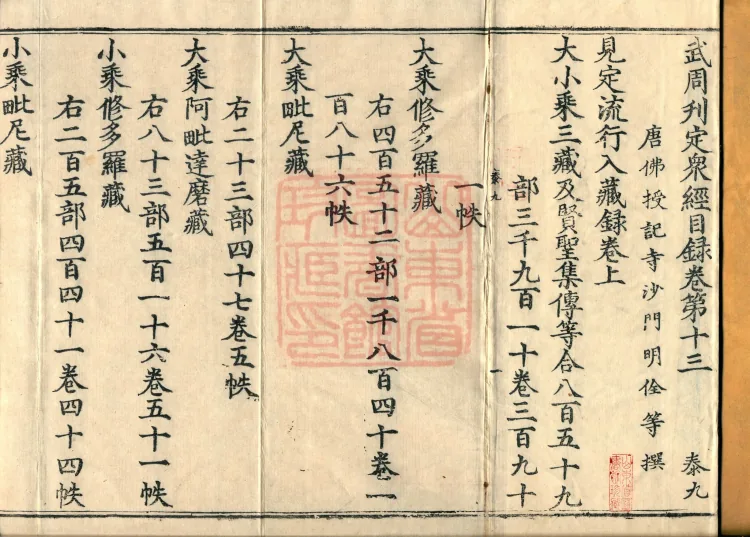 武周刊定衆經目録卷第十三 泰九
唐佛授記寺沙門明佺等撰
見定流行入藏録卷上
大小乘三藏及賢聖集傳等合八百五十九
部三千九百一十卷三百九十
泰九 一
一帙
大乘修多羅藏
右四百五十二部一千八百四十卷一
百八十六帙
大乘毗尼藏
右二十三部四十七卷五帙
大乘阿毗達磨藏
右八十三部五百一十六卷五十一帙
小乘修多羅藏
右二百五部四百四十一卷四十四帙
小乘毗尼藏